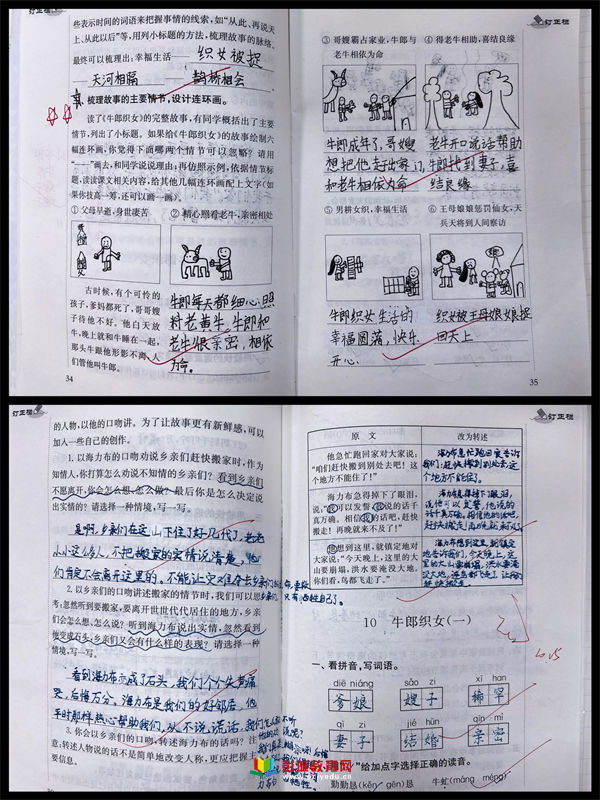 些表示时间的词语来把握事情的线索,如“从此、再说天
上、从此以后”等,用列小标题的方法,梳理故事的脉络。
最终可以梳理出:幸福生活 —— 织女被捉
—— 天河相隔 —— 鹊桥相会
梳理故事的主要情节,设计连环画。
读了《牛郎织女》的完整故事,有同学概括出了主要
情节,列出了小标题。如果给《牛郎织女》的故事绘制六
幅连环画,你觉得下面哪两个情节可以忽略?请用
“——”画去,和同学说说理由;再仿照示例,依据情节标
题,读读课文相关内容,给其他几幅连环画配上文字(如
果你技高一筹,还可以画一画)。
① 父母早逝,身世凄苦
② 精心照看老牛,亲密相处
古时候,有个可怜的
孩子,爹妈都死了,哥哥嫂
子待他不好。他白天放
牛,晚上就和牛睡在一起,
那头牛跟他形影不离,人
们管他叫牛郎。
牛郎每天都细心照
料老黄牛,牛郎和
老牛很亲密,相依
为命。
34
订正栏
③ 哥嫂霸占家业,牛郎与
老牛相依为命
④ 得老牛相助,喜结良缘
牛郎成年了,哥嫂
想把他赶出家门,牛郎
和老牛相依为命
老牛开口说话帮助
找到妻子,喜
结良缘
⑤ 男耕女织,幸福生活
⑥ 王母娘娘惩罚仙女,天
兵天将到人间察访
牛郎织女生活的
幸福圆满,快乐
开心.
织女被王母娘娘捉
回天上
35
订正栏
的人物,以他的口吻讲。为了让故事更有新鲜感,可以
加入一些自己的创作。
1. 以海力布的口吻劝说乡亲们赶快搬家时,作为
知情人,你打算怎么劝说不知情的乡亲们?看到乡亲们
不愿离开,你会怎么想、怎么做?最后你是怎么决定说
出实情的?请选择一种情境,写一写。
是啊,乡亲们在这山下住了好几代了,老老
小小这么多人,不把搬家的实情说清楚,他
们肯定不会离开这里的。不能让
只有牺牲自己了。
2. 以乡亲们的口吻讲述搬家的情节时,我们可以思
考:忽然听到要搬家,要离开世世代代居住的地方,乡亲
们会怎么想、怎么说?听到海力布说出实情,忽然看到
他变成石头,乡亲们又会有什么样的表现?请选择一种
情境,写一写。
看到海力布变成了石头,我们个个失声痛
哭,后悔万分。海力布是我们的好邻居,他
平时那样热心帮助我们,从不说谎话,我们怎么就不听
3. 你会以海力布的口吻,转述海力布的话吗?注
意:转述人物说的话不是简单地改变人称,更应把握主
订正栏
原 文
改为转述
他急忙跑回家对大家说:
“咱们赶快搬到别处去吧!这
个地方不能住了!”
海力布急忙跑回家告诉
我们:赶快搬到别处去,这
个地方不能住。
海力布急得掉下了眼泪,
说:“我可以发誓,我说的话千
真万确。相信我的话吧,赶快
搬走!再晚就来不及了!”
海力布急得掉下眼泪,
说他可以发誓,他说的
他想到这里,就镇定地对
大家说:“今天晚上,这里的大
山要崩塌,洪水要淹没大地。
你们看,鸟都飞走了。”
海力布想到这里,就镇定
地告诉我们,今天晚上,这
里的大山要崩塌,洪水要淹
10 牛郎织女(一)
一、看拼音,写词语。
diē niáng sǎo zi xī han
爹娘 嫂子 稀罕
qī zi jié hūn qīn mì
妻子 结婚 亲密
”给加点字选择正确的读音。
勤勤恳(kěn gěn)恳 牛虻(máng méng)
彭城教育网
pcjyedu.cn